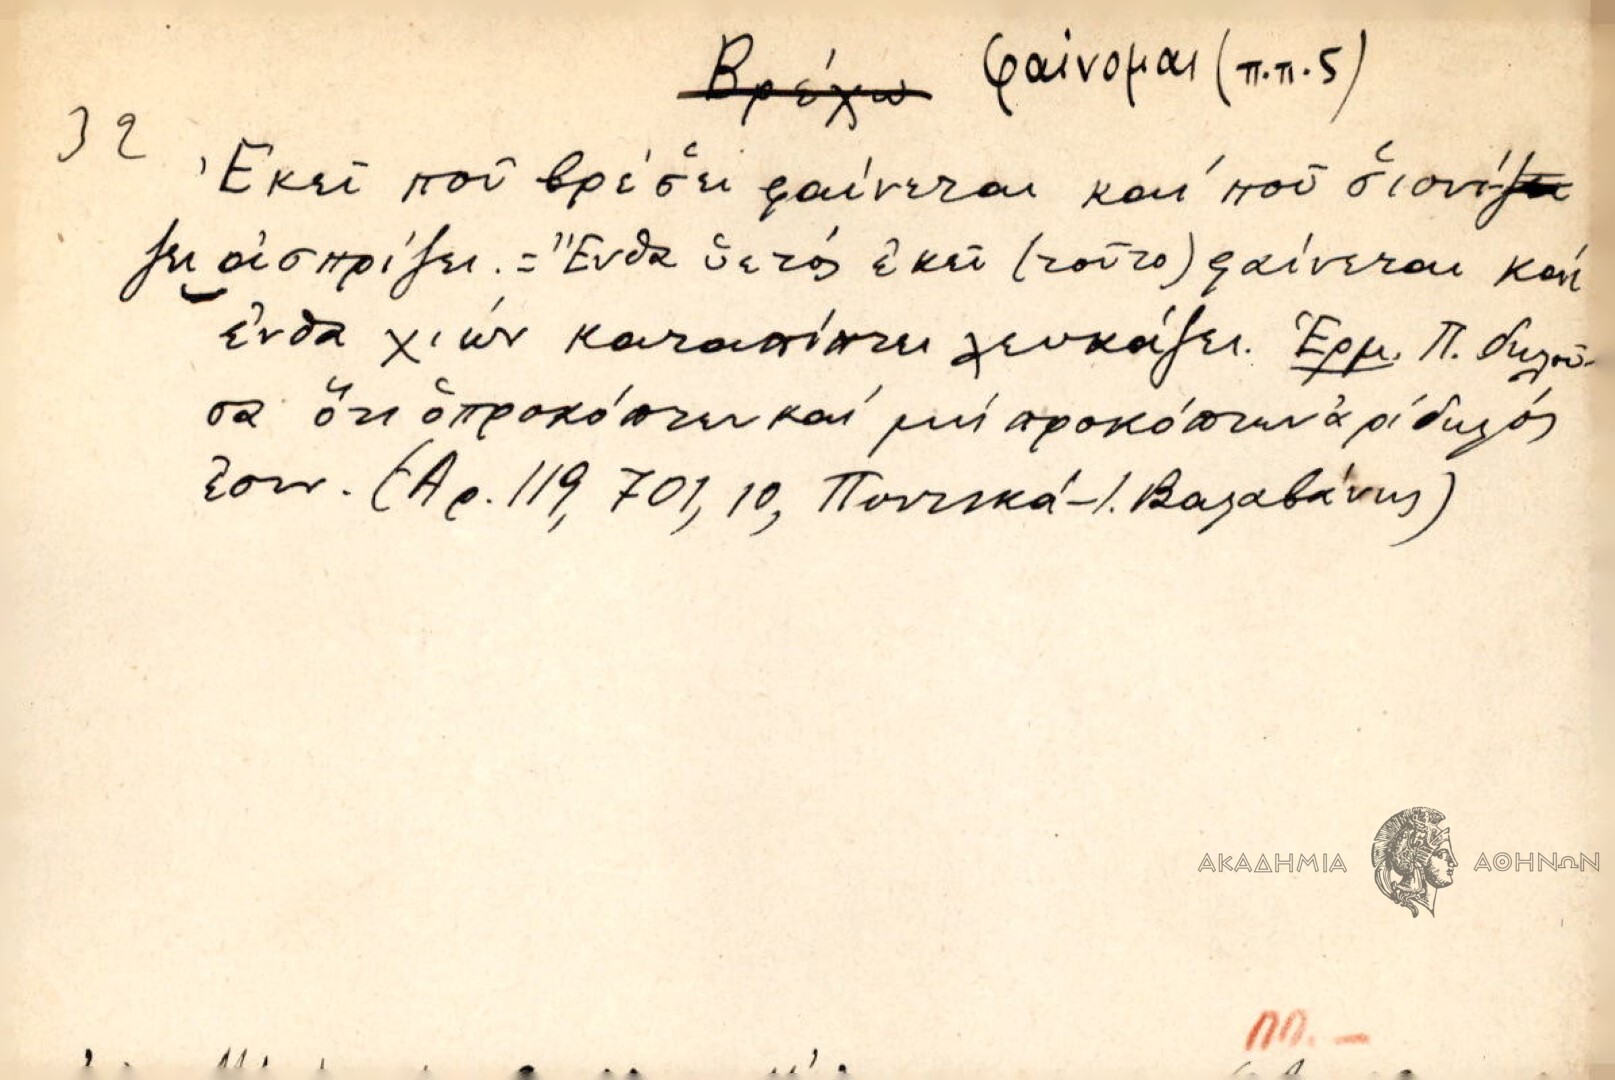 Βρέχω φαίνομαι (π.π.5)
32
Ἐκεῖ ποῦ βρέσ̌ει φαίνεται καὶ ποῦ σ̌ιονί-
ζει ἀσπρίζει. = Ἔνθα ὑετός ἐκεῖ (τοῦτο) φαίνεται καὶ
ἔνθα χιών καταπίπτει λευκάζει. Ἑρμ. Π. δηλοῦ-
σα ὅτι ὁ προκόπτων καί μή προκόπτων ἀρίδηλός
ἐστιν. (Ἀρ. 119, 701, 10, Ποντικά - Ι. Βαλαβάνης)
ΑΚΑΔΗΜΙΑ ΑΘΗΝΩΝ
ΠΠ. –